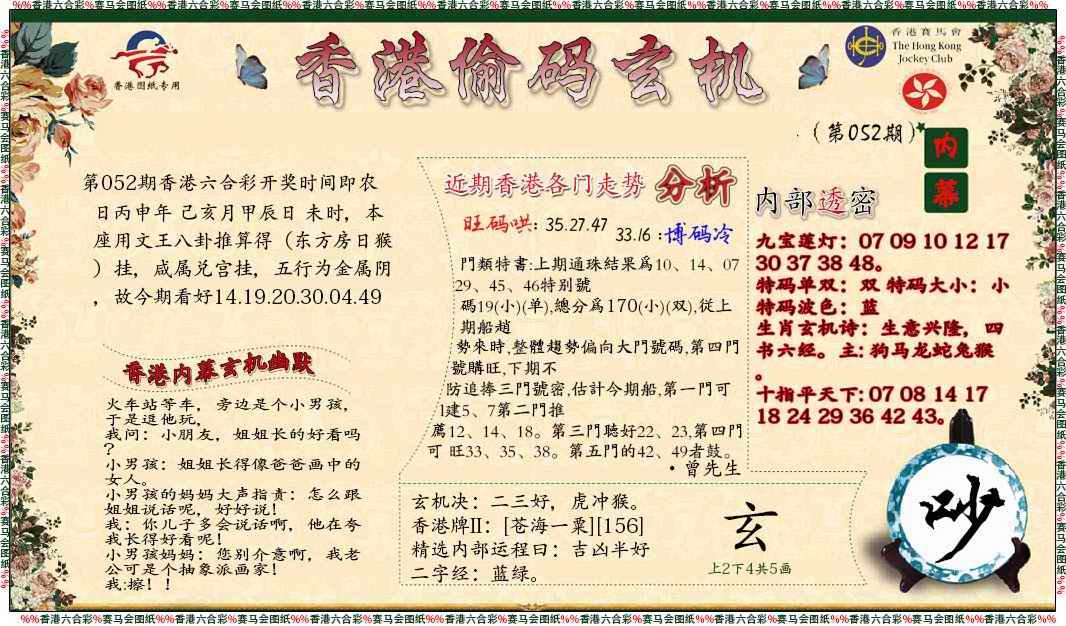 %%香港六合彩%赛马会图纸%%香港六合彩%赛马会图纸%%香港六合彩%赛马会图纸%%香港六合彩%赛马会图纸%%香港六合彩%赛马会图纸%%香港六合彩%赛马会图纸%%香港六合彩%%
香港图纸专用
香港偷码玄机
香港賽馬會
The Hong Kong
Jockey Club
(第052期)
内
幕
第052期香港六合彩开奖时间即农
日丙申年 己亥月甲辰日 未时，本
座用文王八卦推算得（东方房日猴
）挂，咸属兑宫挂，五行为金属阴
，故今期看好14.19.20.30.04.49
香港内幕玄机幽默
火车站等车，旁边是个小男孩，
于是逗他玩，
我问：小朋友，姐姐长的好看吗
？
小男孩：姐姐长得像爸爸画中的
女人。
小男孩的妈妈大声指责：怎么跟
姐姐说话呢，好好说！
我：你儿子多会说话啊，他在夸
我长得好看呢！
小男孩妈妈：您别介意啊，我老
公可是个抽象派画家！
我:擦！！
近期香港各门走势 分析
旺码哄: 35.27.47
33.16 :博码冷
門類特書:上期通珠結果爲10、14、07
29、45、46特别號
碼19(小)(单),總分爲170(小)(双),從上
期船趙
勢來時,整體趨勢偏向大門號碼,第四門
號購旺,下期不
防追捧三門號密,估計今期船,第一門可
1建5、7第二門推
薦12、14、18。第三門聽好22、23,第四門
可 旺33、35、38。第五門的42、49者鼓。
·曾先生
玄机决：二三好，虎冲猴。
香港牌II：[苍海一粟][156]
精选内部运程曰：吉凶半好
二字经：蓝绿。
玄
上2下4共5画
内部透密
九宝莲灯：07 09 10 12 17
30 37 38 48。
特码单双：双 特码大小：小
特码波色：蓝
生肖玄机诗：生意兴隆，四
书六经。主: 狗马龙蛇兔猴
。
十指平天下: 07 08 14 17
18 24 29 36 42 43。
吵
%%香港六合彩%赛马会图纸%%香港六合彩%赛马会图纸%%香港六合彩%赛马会图纸%%香港六合彩%赛马会图纸%%香港六合彩%赛马会图纸%%香港六合彩%赛马会图纸%%香港六合彩%%